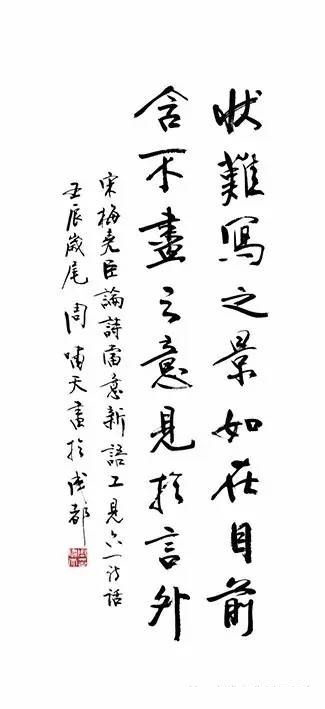 狀難寫之景如在目前
含不盡之意見於言外
宋梅尧臣論詩當意新語工見六一诗話
壬辰歲尾周嘯天書於成都